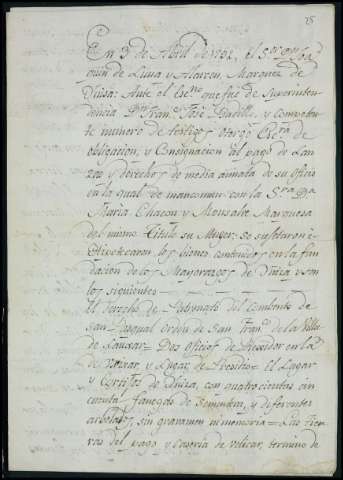 78
En 3 de Abril de 1761, el S.or D.n
quin de Luna y Alarcon, Marques de
Diusa: Ante el Es.no que fue de Superinten-
dencia D.n Fran.co Jose Padilla, y competen-
te numero de testigos otorgó Es.ra de
obligacion, y Consignacion al pago de Lan-
zas y derechos de media annata de su oficio
en la qual de mancomun con la S.ra D.a
Maria Chacon y Monsalve Marquesa
del mismo titulo su Muger: se sujetaron é
Hipotecaron los bienes contenidos en la fun-
dacion de los Mayorazgos de Diusa y son
los siguientes
el derecho de Patronato del Combento de
San Pasqual orden de San Fran.co de la Villa
de Lauxar = Dos oficios de Rexidor en la
de y Lugar de Presidio = el Lagar
y Cortijos de Diusa, con quatrocientas cin
cuenta fanegas de Sementera, y diferentes
arboledas, sin gravamen ni memoria = Las tier
ras del pago y Caseria de velicar, termino de